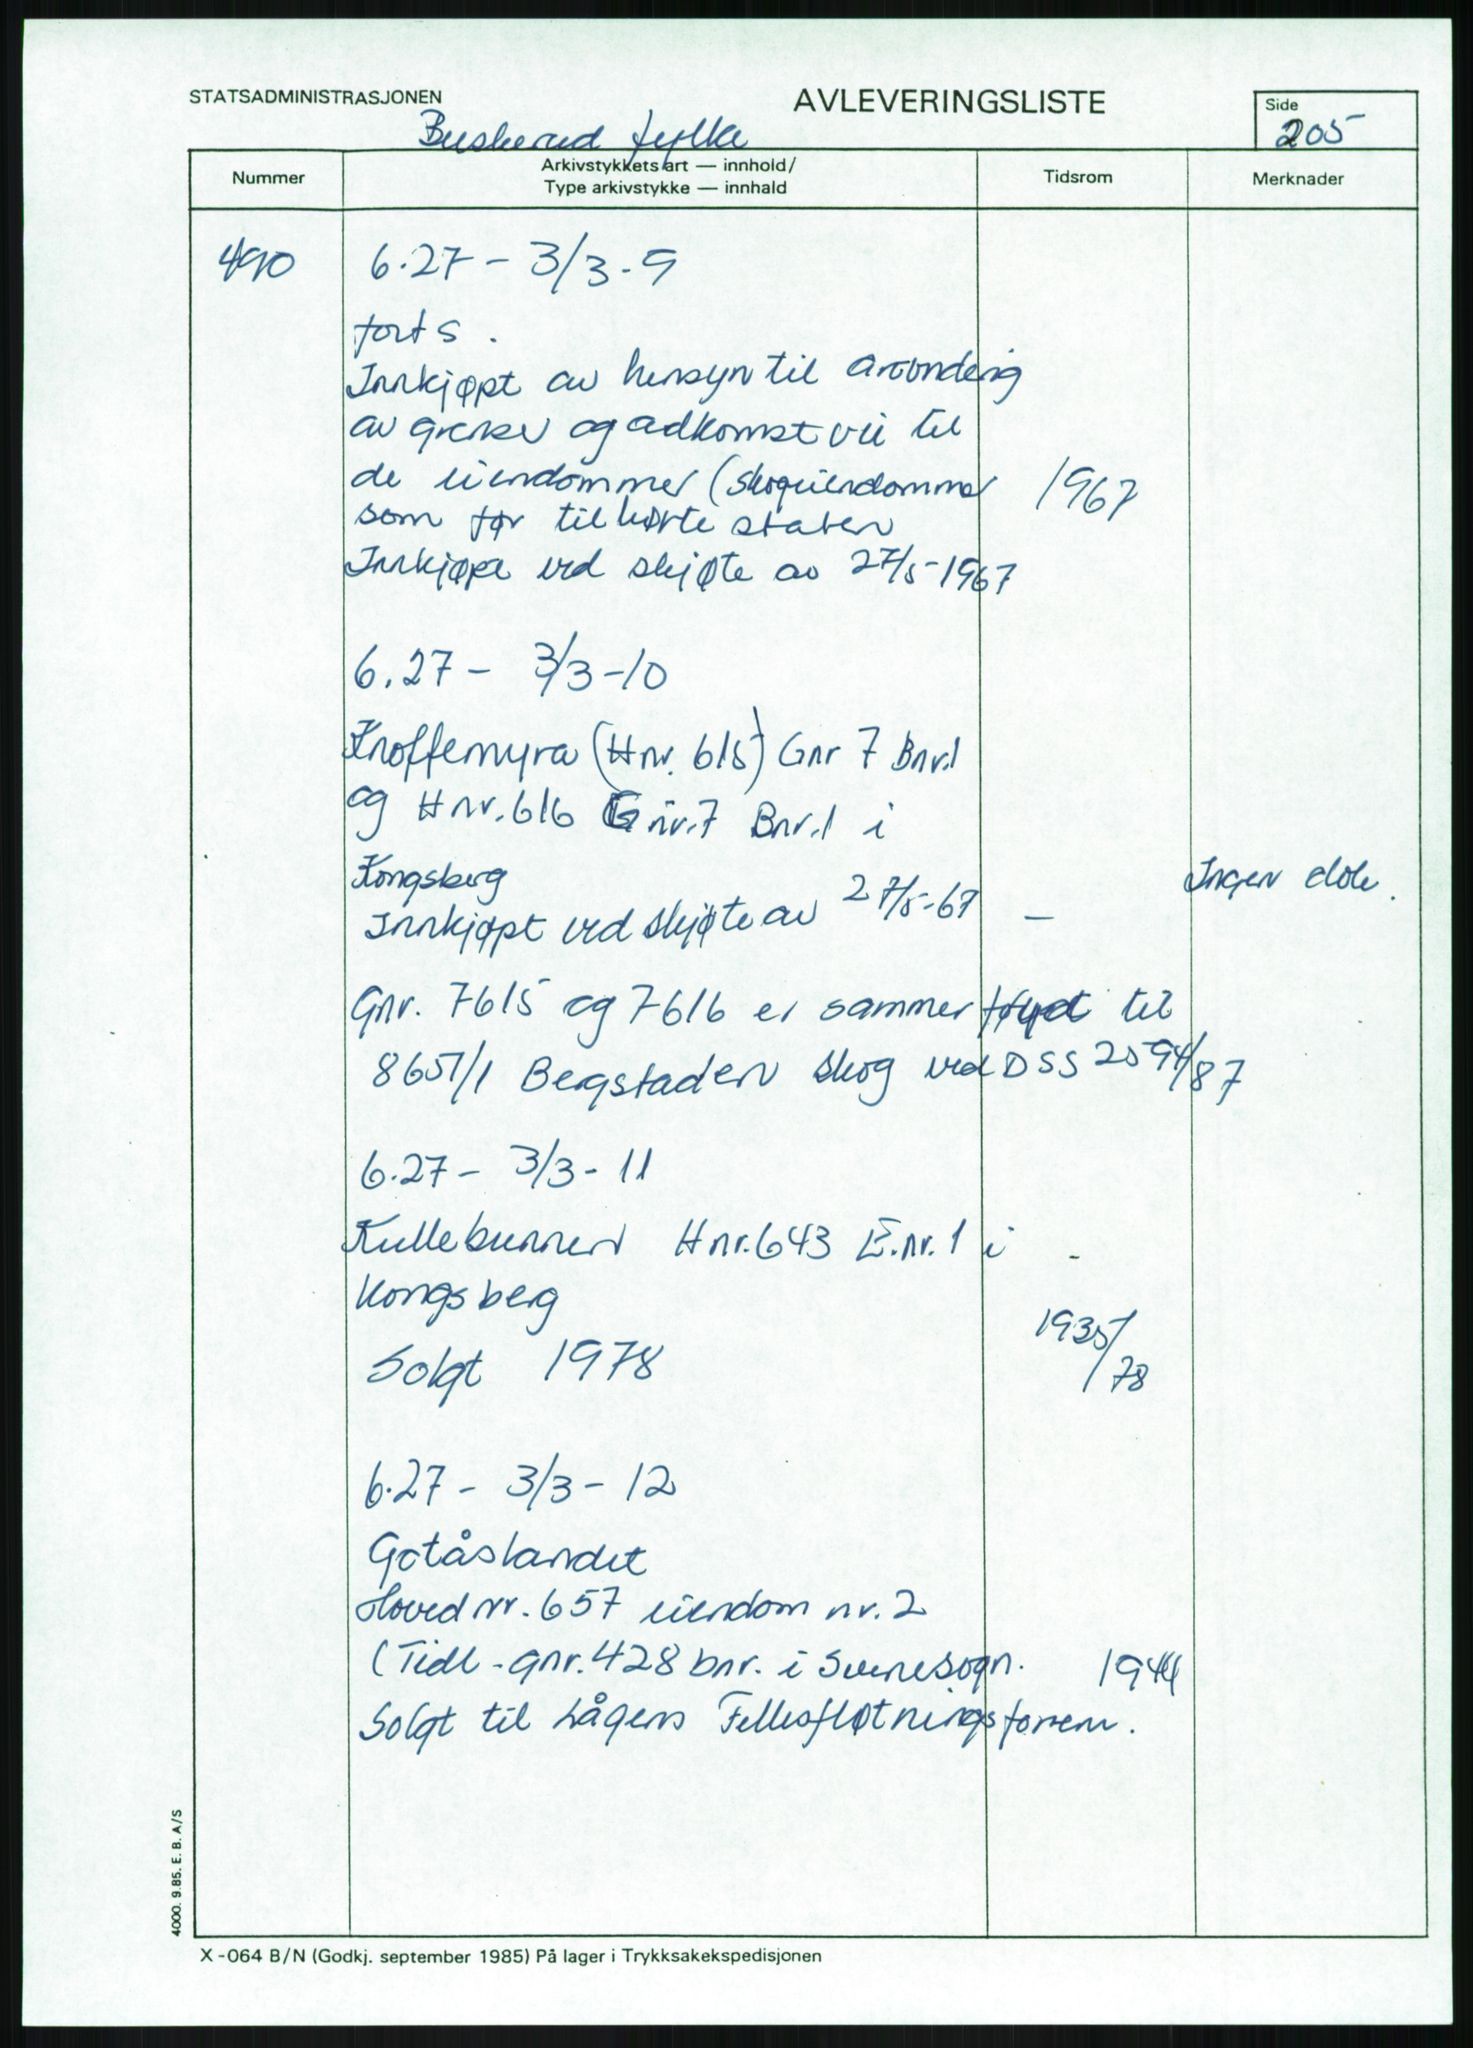 STATSADMINISTRASJONEN
AVLEVERINGSLISTE
Side
205
Buskerud fylke
Nummer
Arkivstykkets art — innhold/
Type arkivstykke — innhald
Tidsrom
Merknader
490
6.27 - 3/3-9
forts.
Innkjøpt av hensyn til arronderig
av grenser og adkomst vei til
de eiendommer (skogeiendommer 1967
som før tilhørte staten
Innkjøpt ved skjøte av 27/5-1967
6.27 - 3/3-10
Knoffemyra (Hnr. 615) Gnr 7 Bnr.1
og Hnr.616 Gnr.7 Bnr.1 i
Kongsberg Ingen dok.
Innkjøpt ved skjøte av 27/5-67 —
Gnr. 7615 og 7616 er sammenføyd til
8651/1 Bergstaden skog ved DSS 2594/87
6.27 - 3/3-11
Kullebunnen Hnr.643 E.nr.1 i -
Kongsberg
Solgt 1978 1935/78
6.27 - 3/3-12
Gotåslandet
Hoved nr. 657 eiendom nr. 2
(Tidl. gnr. 428 bnr. i Svenesogn. 1944
Solgt til Lågens Fellesfløtningsforen.
4000. 9.85. E. B. A/S
X-064 B/N (Godkj. september 1985) På lager i Trykksakekspedisjonen